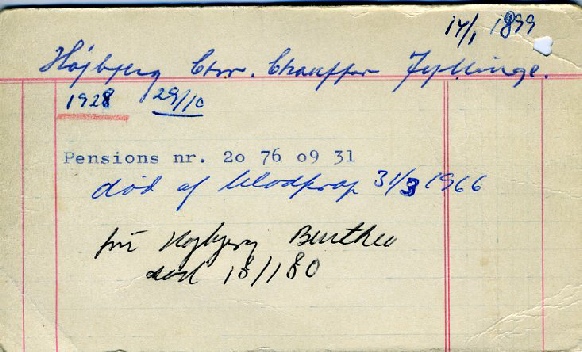 14/1 1899
Højbjerg Chr. Chauffør Jyllinge.
1928 29/10
Pensions nr. 2o 76 o9 31
død af blodprop 31/3 1966
fru Højbjerg Berthea
død 18/1 80